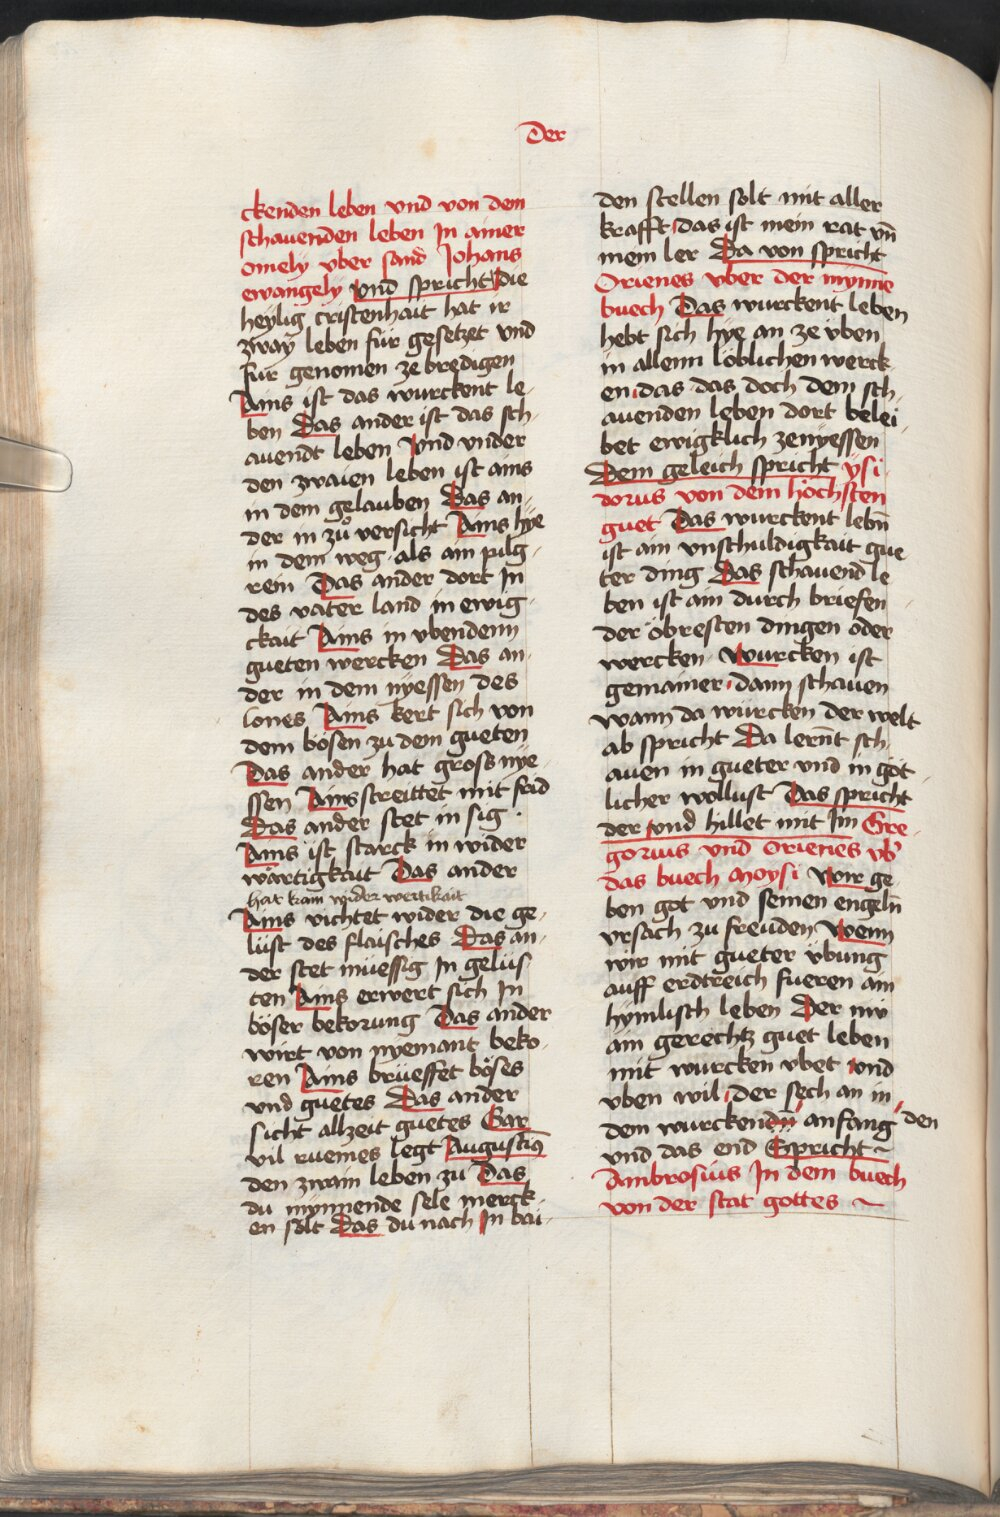 Der
ckenden leben vnd von dem
schauenden leben In ainer
omely vber sand Johans
ewangely vnd spricht die
heylig cristenhait hat ir
zway leben für gesetzet vnd
für genomen ze bredigen
Ains ist das wurckent le-
ben Das ander ist das sch-
auendt leben Vnd vnder
den zwaien leben ist ains
in dem gelauben Das an-
der in zů versicht Ains hye
in dem weg als ain pilg-
rem Das ander dort In
des vater land in ewig-
ckait Ains in vbendenn
gueten wercken Das an-
der in dem nyessen des
lones Ains kert sich von
dem bösen zu dem gueten
Das ander hat gross nye-
ssen Ains streittet mit frid
Das ander stet in sig
Ains ist starck in wider
wärtigkait Das ander
hat kain wider wertikait
Ains vichtet wider die ge-
lüst des flaisches Das an-
der stet müessig In gelüs
ten Ains erwert sich In
böser bekorung Das ander
wirt von nyemant beko-
ren Ains brüeffet böses
vnd guetes Das ander
sicht allzeit guetes Gar
vil ruemes legt Augustinus
den zwain leben zu Das
du mynnende sele merck-
en solt Das du nach In bai-
den stellen solt mit aller
krafft das ist mein rat vn̄
mein ler Da von spricht
Orienes vber der mynne
buech Das wurckent leben
hebt sich hye an ze vben
in allenn löblichen werck
en das das doch dem sch-
auenden leben dort belei-
bet ewigklich zenyessen
Dem geleich spricht ysi-
dorus von dem höchsten
guet Das wurckent lebn̄
ist ain vnschuldigkait gue
ter ding Das schauend le
ben ist ain durch briefen
der öbresten dingen oder
wercken Wurcken ist
gemainer dann schauen
wann da würcken der welt
ab spricht Da lernt̄ sch-
auen in gueter vnd in göt-
licher wollust Das spricht
der vnd hillet mit Im Gre-
gorius vnd Orienes vb̄
das buech Moysi Wir ge-
ben got vnd seinen engeln̄
vrsach zu freuden Wenn
wir mit gueter vbung
auff erdtreich fueren ain
hymlisch leben Der nw
ain gerechtz guet leben
mit wurcken vbet vnd
vben wil der sech an in
dem wurckenden anfang den
vnd das end Spricht
Ambrosius In dem buech
von der stat gottes